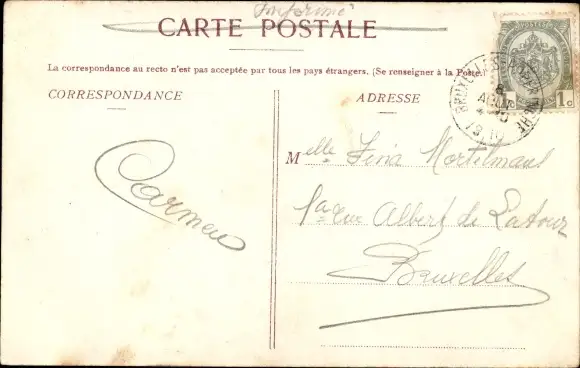 Informé
CARTE POSTALE
La correspondance au recto n'est pas acceptée par tous les pays étrangers. (Se renseigner à la Poste.)
CORRESPONDANCE
ADRESSE
1c
8
AOUT
1910
Carmen
Melle Fina Mortelmans
1a Rue Albert de Latour
Bruxelles